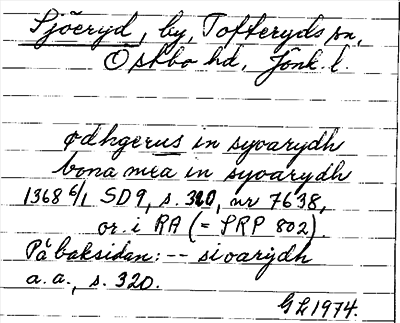 Sjöeryd, by, Tofteryds sn,
Östbo hd, Jönk. l.
ødhgerus in syoarydh
bona mea in syoarydh
1368 6/1 SD 9, s. 320, nr 7638,
or. i RA (= SRP 802).
På baksidan: -- sioarydh
a. a., s. 320.
G L 1974.